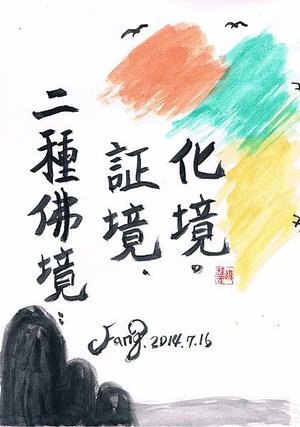 二種佛境：
証境、
化境。
Jang. 2014.7.16